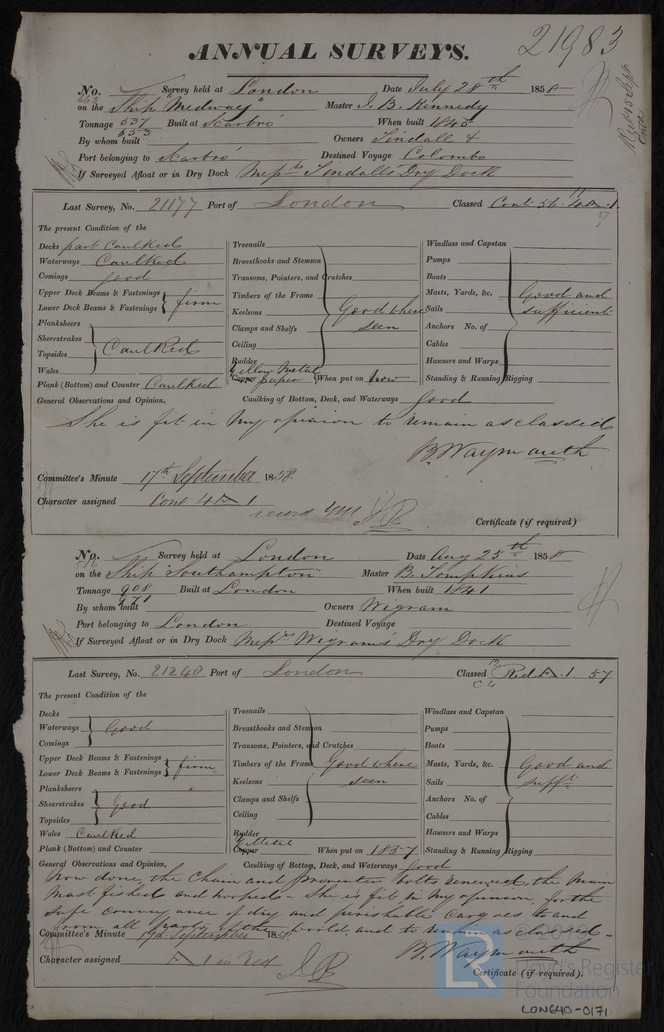 21983
ANNUAL SURVEYS.
No. 663 Survey held at London Date July 28th 1858
on the Ship "Medway" Master J. B. Kennedy
Tonnage 537 553 Built at Scarbro' When built 1845
By whom built Owners Tindall &
Port belonging to Scarbro' Destined Voyage Colombo
If Surveyed Afloat or in Dry Dock Messrs Tindalls Dry Dock
Last Survey, No. 21177 Port of London Classed Cont 56. 4 A. 1. 57
The present Condition of the
Decks part Caulked
Waterways Caulked
Comings good
Upper Deck Beams & Fastenings
Lower Deck Beams & Fastenings } firm
Plansheers
Sheerstrakes
Topsides } Caulked
Wales
Plank (Bottom) and Counter Caulked
Treenails
Breasthooks and Stemson
Transoms, Pointers, and Crutches
Timbers of the Frame
Keelsons } Good where seen
Clamps and Shelfs
Ceiling
Rudder
Yellow Metal
Copper paper When put on now
Windlass and Capstan
Pumps
Boats
Masts, Yards, &c. } Good and
Sails sufficient
Anchors No. of
Cables
Hawsers and Warps
Standing & Running Rigging
General Observations and Opinion, Caulking of Bottom, Deck, and Waterways good
She is fit in my opinion to remain as classed
B. Waymouth
Committee's Minute 17th September 1858.
Character assigned Cont 4 A 1
record YM
Certificate (if required)
No. Survey held at London Date Aug 25th 1858
on the Ship "Southampton" Master B. Tompkins
Tonnage 908 971 Built at London When built 1841
By whom built Owners Wigram
Port belonging to London Destined Voyage
If Surveyed Afloat or in Dry Dock Messrs Wigrams Dry Dock
Last Survey, No. 21248 Port of London Classed Red A. 1. 57
The present Condition of the
Decks
Waterways } Good
Comings
Upper Deck Beams & Fastenings
Lower Deck Beams & Fastenings } firm
Plansheers
Sheerstrakes } Good
Topsides
Wales Caulked
Plank (Bottom) and Counter
Treenails
Breasthooks and Stemson
Transoms, Pointers, and Crutches
Timbers of the Frame Good where
Keelsons seen
Clamps and Shelfs
Ceiling
Rudder
Y. Metal
Copper When put on 1857
Windlass and Capstan
Pumps
Boats
Masts, Yards, &c. } Good and
Sails sufft
Anchors No. of
Cables
Hawsers and Warps
Standing & Running Rigging
General Observations and Opinion, Caulking of Bottom, Deck, and Waterways Good
Now done, the Chain and Preventer bolts renewed, the Main
Mast fished and hooped - She is fit in my opinion, for the
safe conveyance of dry and perishable Cargoes to and
from all parts of the world, and to remain as classed -
Committee's Minute 17th September 1858
B. Waymouth
Character assigned A 1 in Red
Certificate (if required).
Lloyd's Register
Foundation
LON640-0171